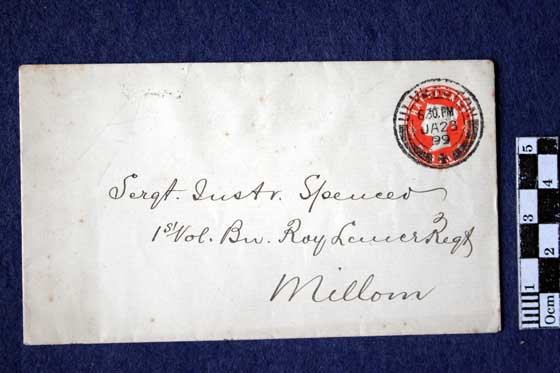 ULVERSTON
6.30.PM
JA23
99
Sergt. Instr. Spencer
1st Vol. Bn. Roy Lancr Regt
Millom
5
4
3
2
1
0cm